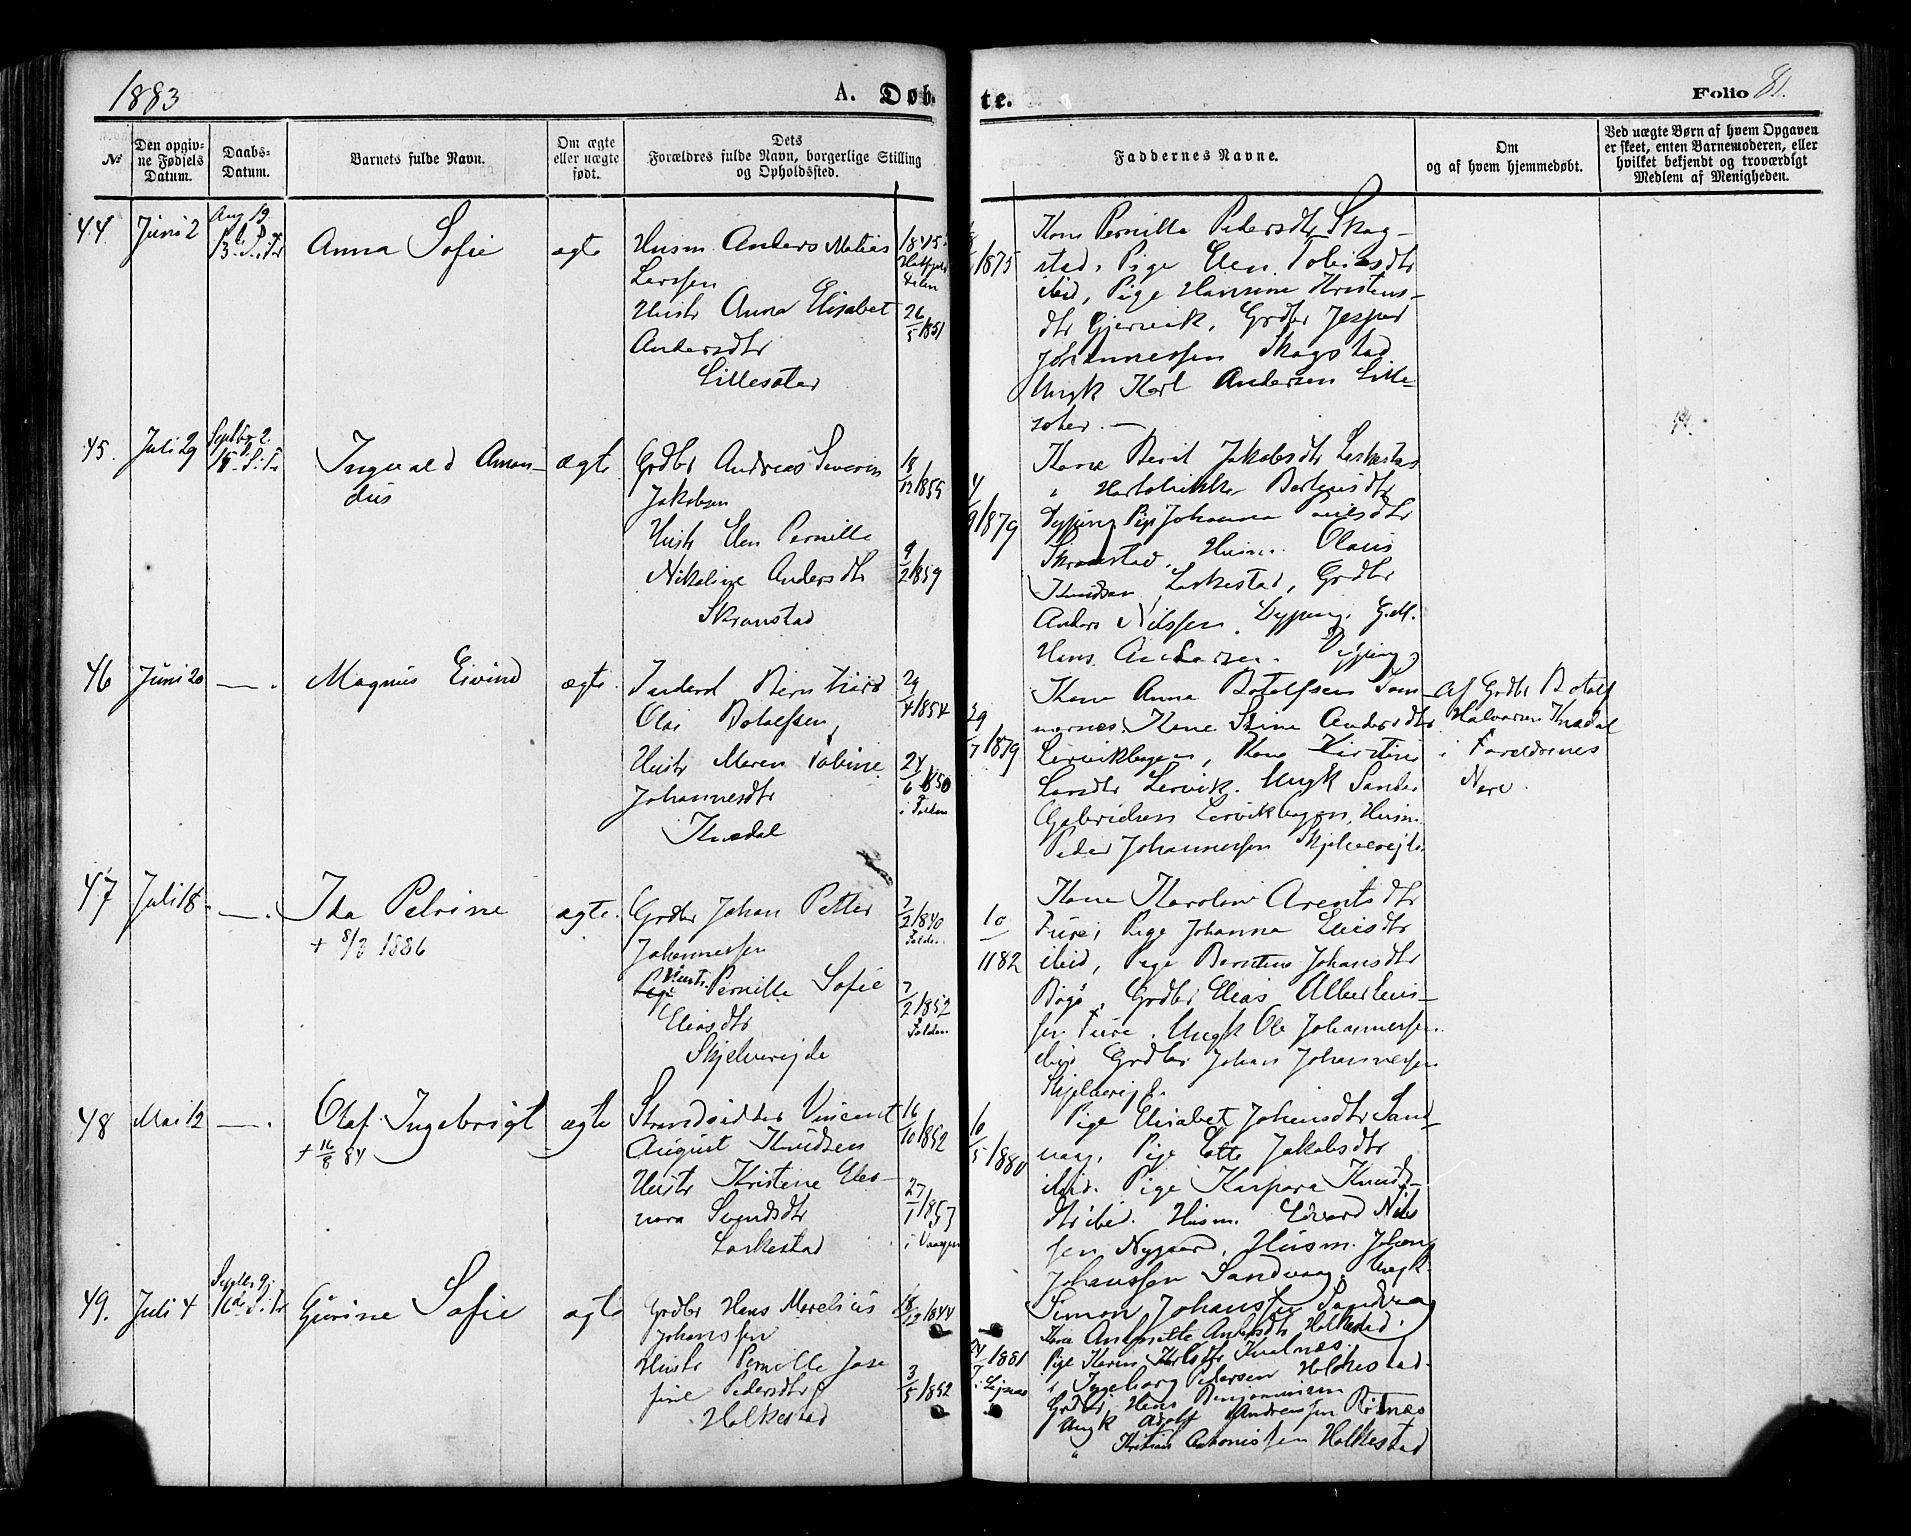 1883
A. Døbte.
Folio 81.
№
Den opgivne Fødsels Datum.
Daabs-Datum.
Barnets fulde Navn.
Om ægte eller uægte født.
Dets Forældres fulde Navn, borgerlige Stilling og Opholdssted.
Faddernes Navne.
Om og af hvem hjemmedøbt.
Ved uægte Børn af hvem Opgaven er skeet, enten Barnemoderen, eller hvilket bekjendt og troværdigt Medlem af Menigheden.
44. Juni 2
Aug 19
13 S. e. Tr
Anna Sofie
ægte
Husm Anders Matias
Larssen
Hustr Anna Elisabet
Andersdtr
Lillesøter
1845
26/5 1851
1875
Kone Pernille Pedersdtr Skag-
stad, Pige Elen Tobiasdtr
ibid, Pige Hansine Kristens-
dtr Gjervik, Grdbr Jesper
Johannessen Skagstad
Ungk Karl Andersen Lille-
søter. —
45. Juli 29
Septbr 2.
15 S. e. Tr
Ingvald Aman-
dus
ægte
Grdbr Andreas Severin
Jakobsen
Hustr Elen Pernille
Nikoline Andersdtr
Skranstad
18/12 1855
9/2 1859
4/9 1879
Kone Berit Jakobsdtr Leskestad
Dypping Pige Johanna
Skranstad, Husm. Olaus
Knudsen Laskestad, Grdbr
Anders Nilssen Dypping. G.M.
Hans Andersen Dypping
46 Juni 20 —.
Magnus Eivind
ægte.
Inderst Berntiard
Olai Botolfsen,
Hustr Maren Tobine
Johannesdtr
Knedal
29/4 1854
24/6 1850
i Folden
29/7 1879
Kone Anna Botolfsen Tom-
mernes, Kone Stine Andersdtr
Lervikbogen, Kone Kirstine
Larsdtr Lervik. Ungk Sander
Gabrielsen Lervikbogen, Husm.
Peder Johannessen Skjelverejde
Af Grdbr Botolf
Halvorsen Knedal
i Forældrenes
Nærv.
47 Juli 18 —.
Ida Petrine
+ 8/3 1886
ægte.
Grdbr Johan Petter
Johannessen
Hustr. Pernille Sofie
Eliasdtr
Skjelverejde
7/2 1840
Folden
7/2 1852
Folden
10/11 82
Kone Karoline Arentsdtr
Fure, Pige Johanna Eliasdtr
ibid, Pige Berntine Johansdtr
Bogø, Grdbr Elias Albertus-
sen Fure. Ungk Ole Johannessen
ibid Grdbr Johan Johannessen
Skjelverejde.
48 Mai 12 —.
Olaf Ingebrigt
+ 16/8 84
ægte
Strandsidder Vincent
August Knudsen
Hustr Kristine Eleo-
nora Svendsdtr
Laskestad
16/10 1852
27/1 1857
i Vaagen
10/5 1880
Pige Elisabet Johansdtr Sand-
vaag, Pige Lotte Jakobsdtr
ibid. Pige Kaspara Knuds-
dtr ibid. Husm. Edvard Nils
sen Nygaard, Husm. Johan
Johanssen Sandvaag Ungk
Simon Johanssen Sandvaag
49. Juli 4
Septbr 9.
16de S. e. Tr
Gurine Sofie
ægte
Grdbr Hans Marelius
Johanssen
Hustr Pernille Jose
fine Pedersdtr
Holkestad
18/12 1844
3/5 1852
1881
Kone Antonette Andersdtr Holkestad.
Pige Karen Karlsdtr Kvalnes.
" Ingeborg Pedersen Holkestad.
Grdbr Hans Benjaminsen
Ungk Adolf Andreassen Bøtnes
" Kristian Antonissen Holkestad